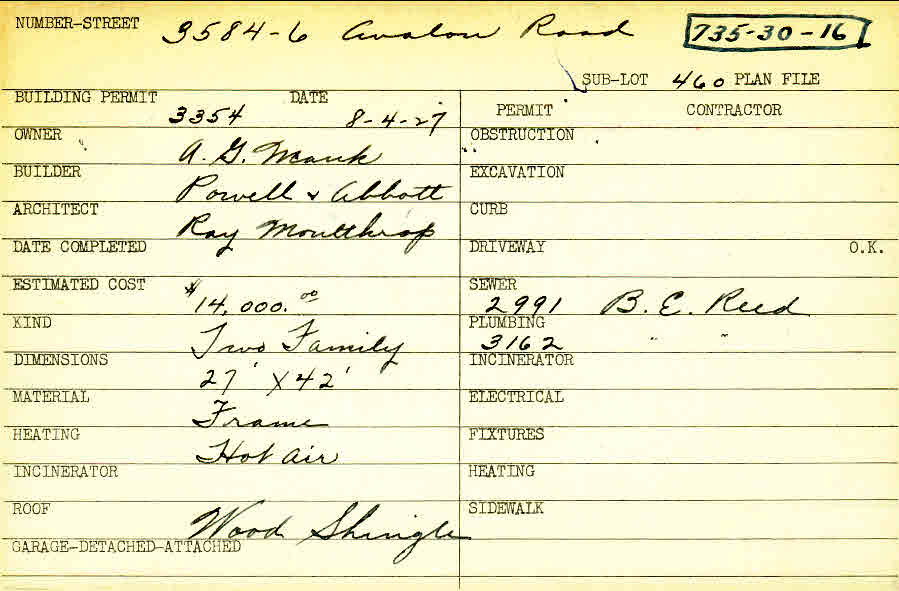 NUMBER-STREET 3584-6 Avalon Road 735-30-16
SUB-LOT 460 PLAN FILE
BUILDING PERMIT 3354 DATE 8-4-27
OWNER A. G. Mauk
BUILDER Powell & Abbott
ARCHITECT Ray Moulthrop
DATE COMPLETED
ESTIMATED COST $14,000.00
KIND Two Family
DIMENSIONS 27' X 42'
MATERIAL Frame
HEATING Hot air
INCINERATOR
ROOF Wood Shingle
GARAGE-DETACHED-ATTACHED
PERMIT CONTRACTOR
OBSTRUCTION
EXCAVATION
CURB
DRIVEWAY O.K.
SEWER 2991 B. E. Reed
PLUMBING 3162 " "
INCINERATOR
ELECTRICAL
FIXTURES
HEATING
SIDEWALK